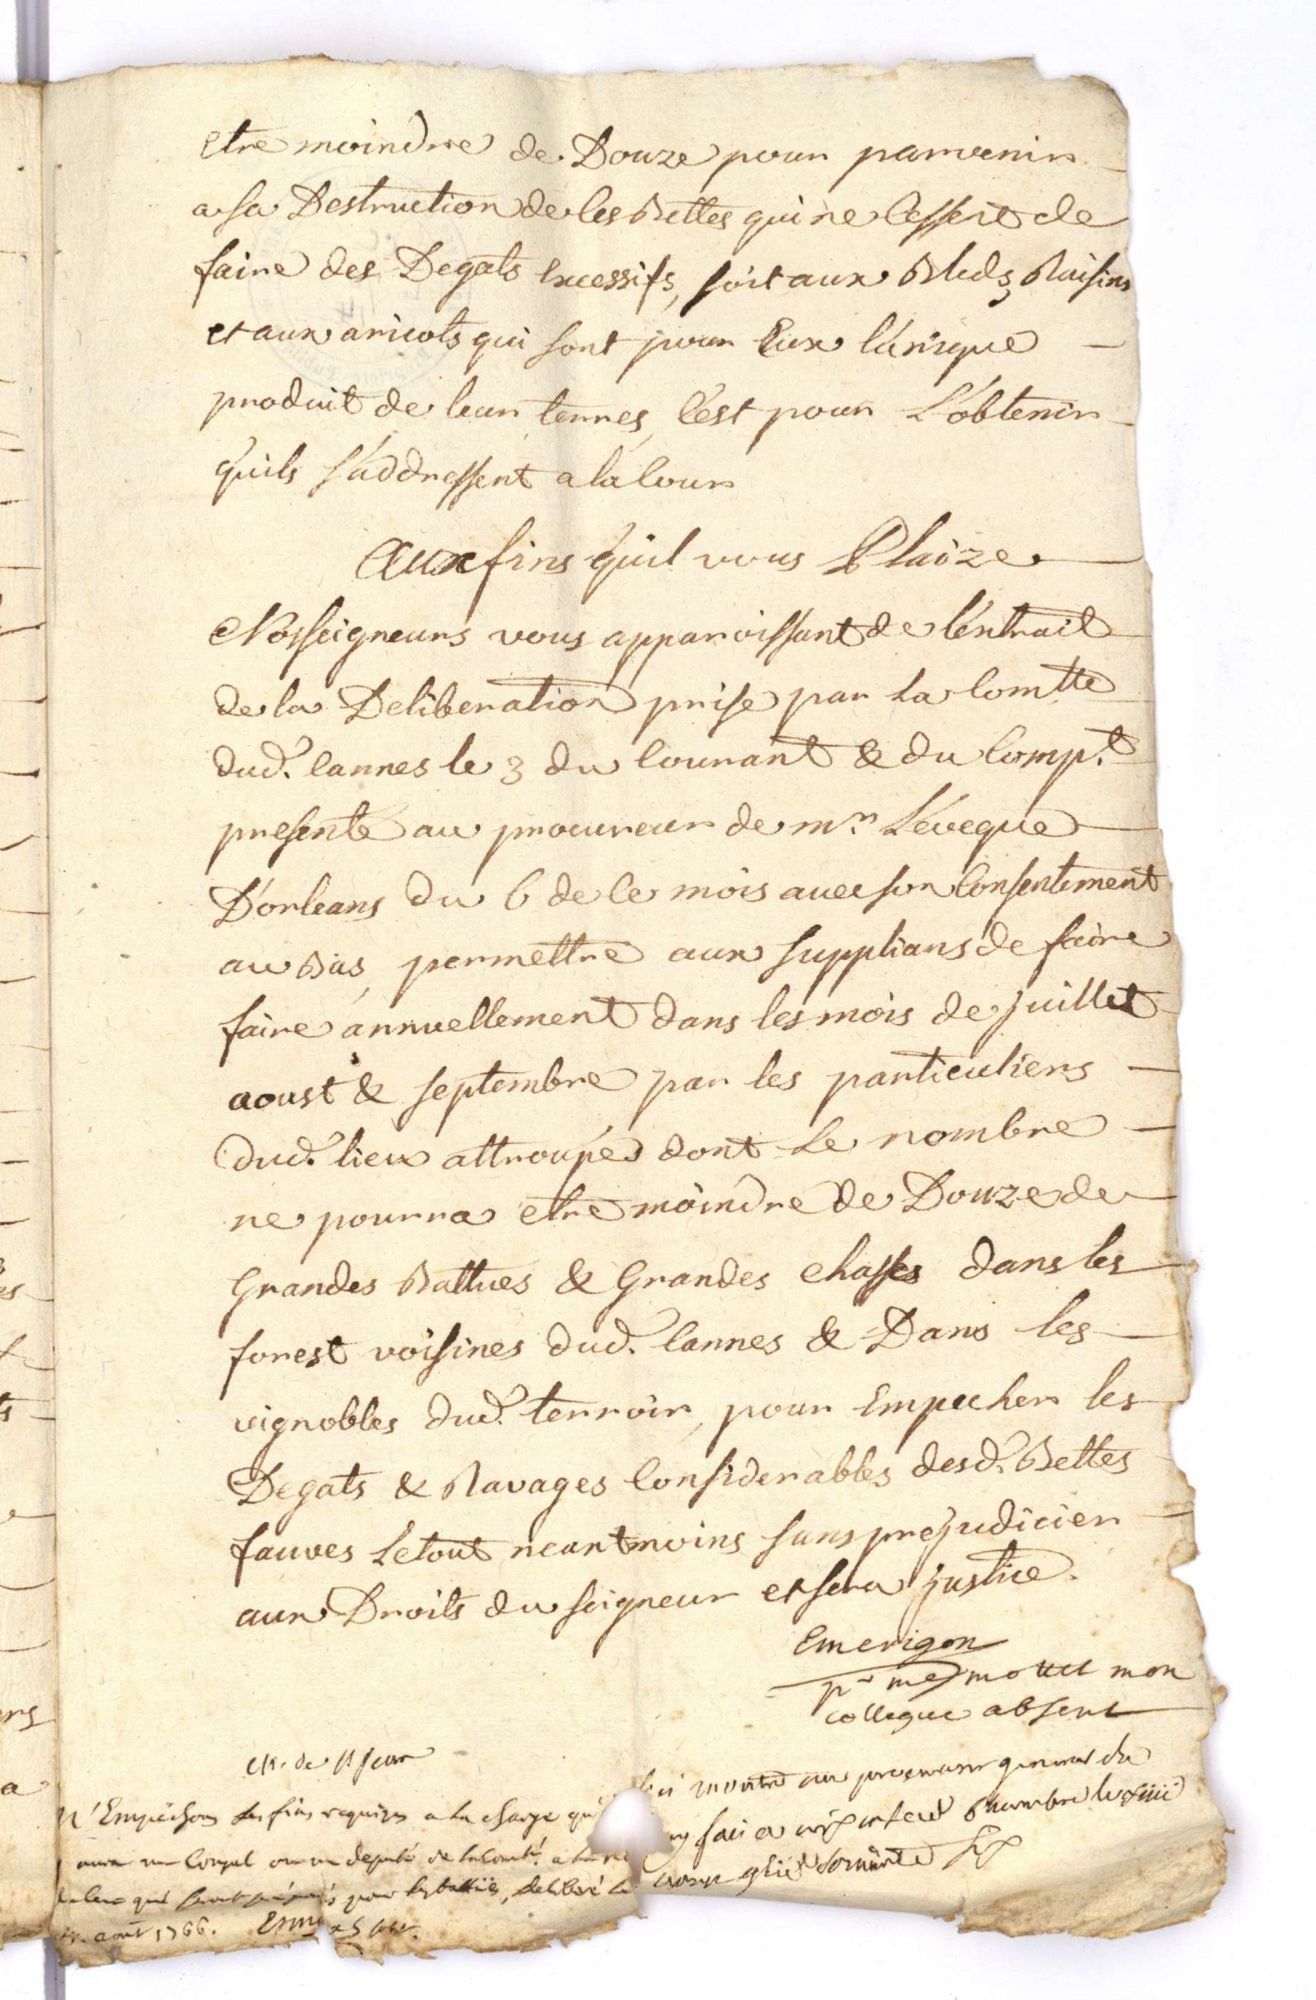 etre moindre de Douze pour parvenir
a la Destruction de ces Bettes qui ne cessent de
faire des Degats excessifs, soit aux Bleds, Raisins
et aux aricots qui sont pour Eux l'unique
produit de leur terres, C'est pour L'obtenir
qu'ils s'addressent a la Cour
Aux fins qu'il vous Plaize
Nosseigneurs vous apparoissant de l'extrait
de la Deliberation prise par la Com.tte
dud. Cannes le 3 du Courant & du Comp.t
presenté au procureur de m.r L'eveque
D'orleans du 6 de ce mois avec son Consentement
au Bas, permettre aux supplians de faire
faire annuellement dans les mois de juillet
aoust & septembre par les particuliers
dud. lieu attroupés dont Le nombre
ne pourra etre moindre de Douze de
Grandes Battues & Grandes chasses dans les
forest voisines dud. Cannes & Dans les
vignobles dud. terroir, pour Empecher les
Degats & Ravages Considerables desd. Bettes
fauves Le tout neantmoins sans prejudicier
aux Droits du seigneur et sera justice.
Emerigon
p.r me mottet mon
collegue absent
soit montré au procureur general du
Roy fait a aix en parlement
N'Empechons les fins requises a la charge qu'
un Consul ou un deputé de la Com.té
pour les battües, deliberé
aoust 1766.